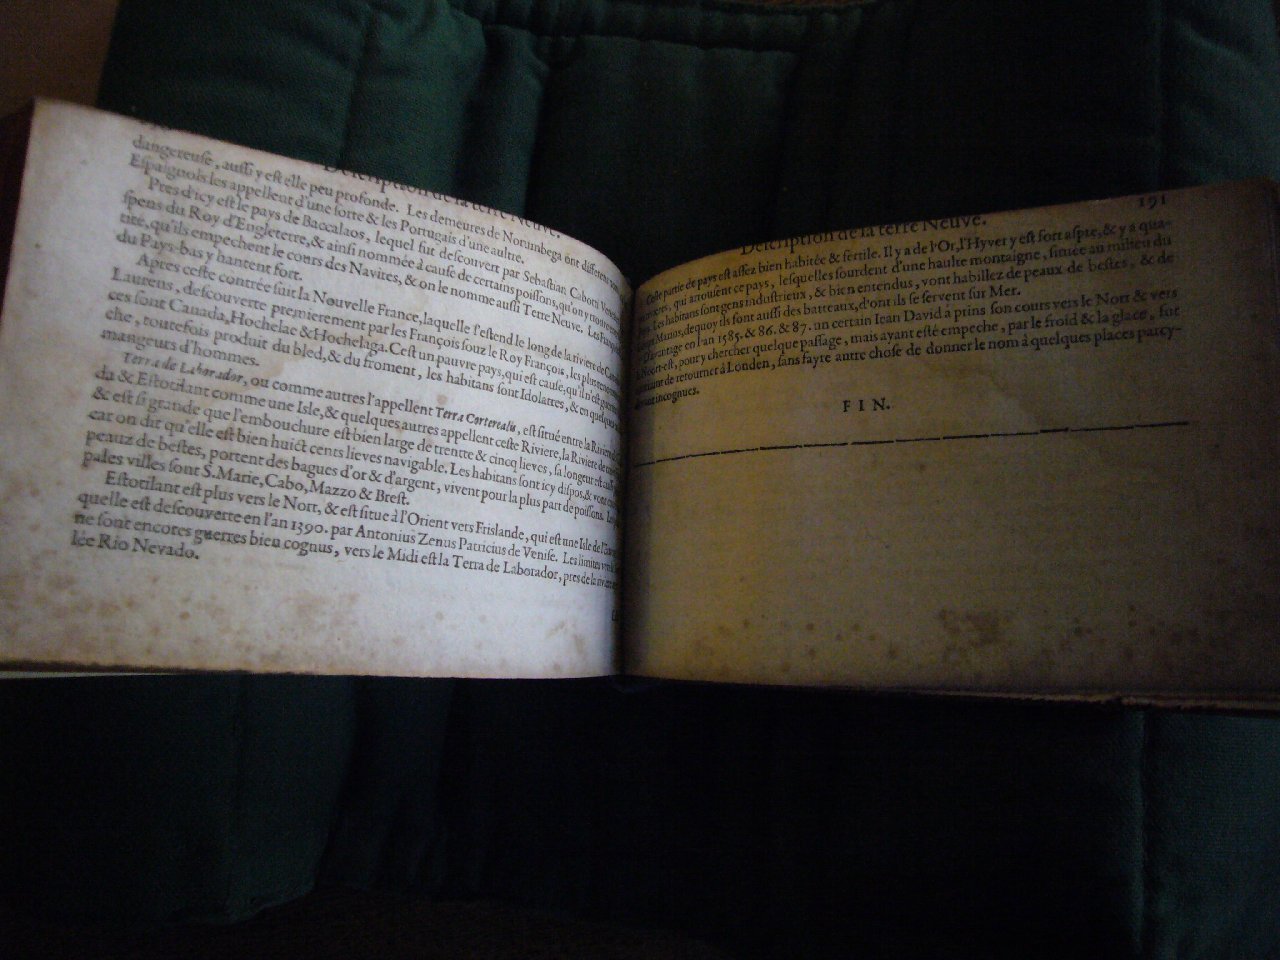 Description de la terre Neuve.
dangereuse, aussi y est elle peu profonde. Les demeures de Norumbega ont differents noms
Espaignols les appellent d'une sorte & les Portugais d'une aultre.
Pres d'icy est le pays de Baccalaos, lequel fut descouvert par Sebastian Cabotti
spens du Roy d'Engleterre, & ainsi nommée à cause de certains poissons, qu'on y
tité, qu'ils empechent le cours des Navires, & on le nomme aussi Terre Neuve. Les
du Pays-bas y hantent fort.
Apres ceste contrée suit la Nouvelle France, laquelle s'estend le long de la riviere de
Laurens, descouverte premierement par les François souz le Roy François, les
ces sont Canada, Hochelae & Hochelaga. C'est un pauvre pays, qui est cause, qu'il n'est
che, toutefois produit du bled, & du froment, les habitans sont Idolatres, & en quelque
mangeurs d'hommes.
Terra de Laborador, ou comme autres l'appellent Terra Corterealis, est situé entre la Riviere
da & Estotilant comme une Isle, & quelques autres appellent ceste Riviere, la Riviere de
& est si grande que l'embouchure est bien large de trentte & cinq lieves, sa longeur est
car on dit qu'elle est bien huict cents lieves navigable. Les habitans sont icy dispos, &
peauz de bestes, portent des bagues d'or & d'argent, vivent pour la plus part de poissons.
pales villes sont S. Marie, Cabo, Mazzo & Brest.
Estotilant est plus vers le Nort, & est situe à l'Orient vers Frislande, qui est une Isle de
quelle est descouverte en l'an 1390. par Antonius Zenus Patricius de Venise. Les limites
ne sont encores guerres bien cognus, vers le Midi est la Terra de Laborador, pres de la riviere
lée Rio Nevado.
191
Description de la terre Neuve.
Celle partie de pays est assez bien habitée & fertile. Il y a de l'Or, l'Hyver y est fort aspre, & y a qua-
rivieres, qui arrousent ce pays, lesquelles sourdent d'une haulte montaigne, située au milieu du
Les habitans sont gens industrieux, & bien entendus, vont habillez de peaux de bestes, & de
Marins, dequoy ils sont aussi des batteaux, d'ont ils se servent sur Mer.
D'avantage en l'an 1585. & 86. & 87. un certain Iean David à prins son cours vers le Nort & vers
Noort-est, pour y chercher quelque passage, mais ayant esté empeche, par le froid & la glace, fut
de retourner à Londen, sans fayre autre chose de donner le nom à quelques places parcy-
incognues.
FIN.